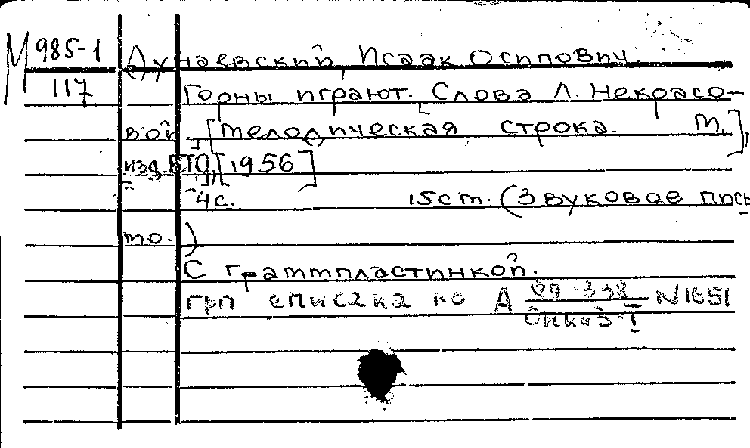 М 985-1
117
Дунаевский, Исаак Осипович.
Горны играют. Слова Л. Некрасо-
вой. [Мелодическая строка. М.],
изд. ВТО, [1956]
4с. 15см. (Звуковое пись
мо.)
С граммпластинкой.
грп списка по А N1651